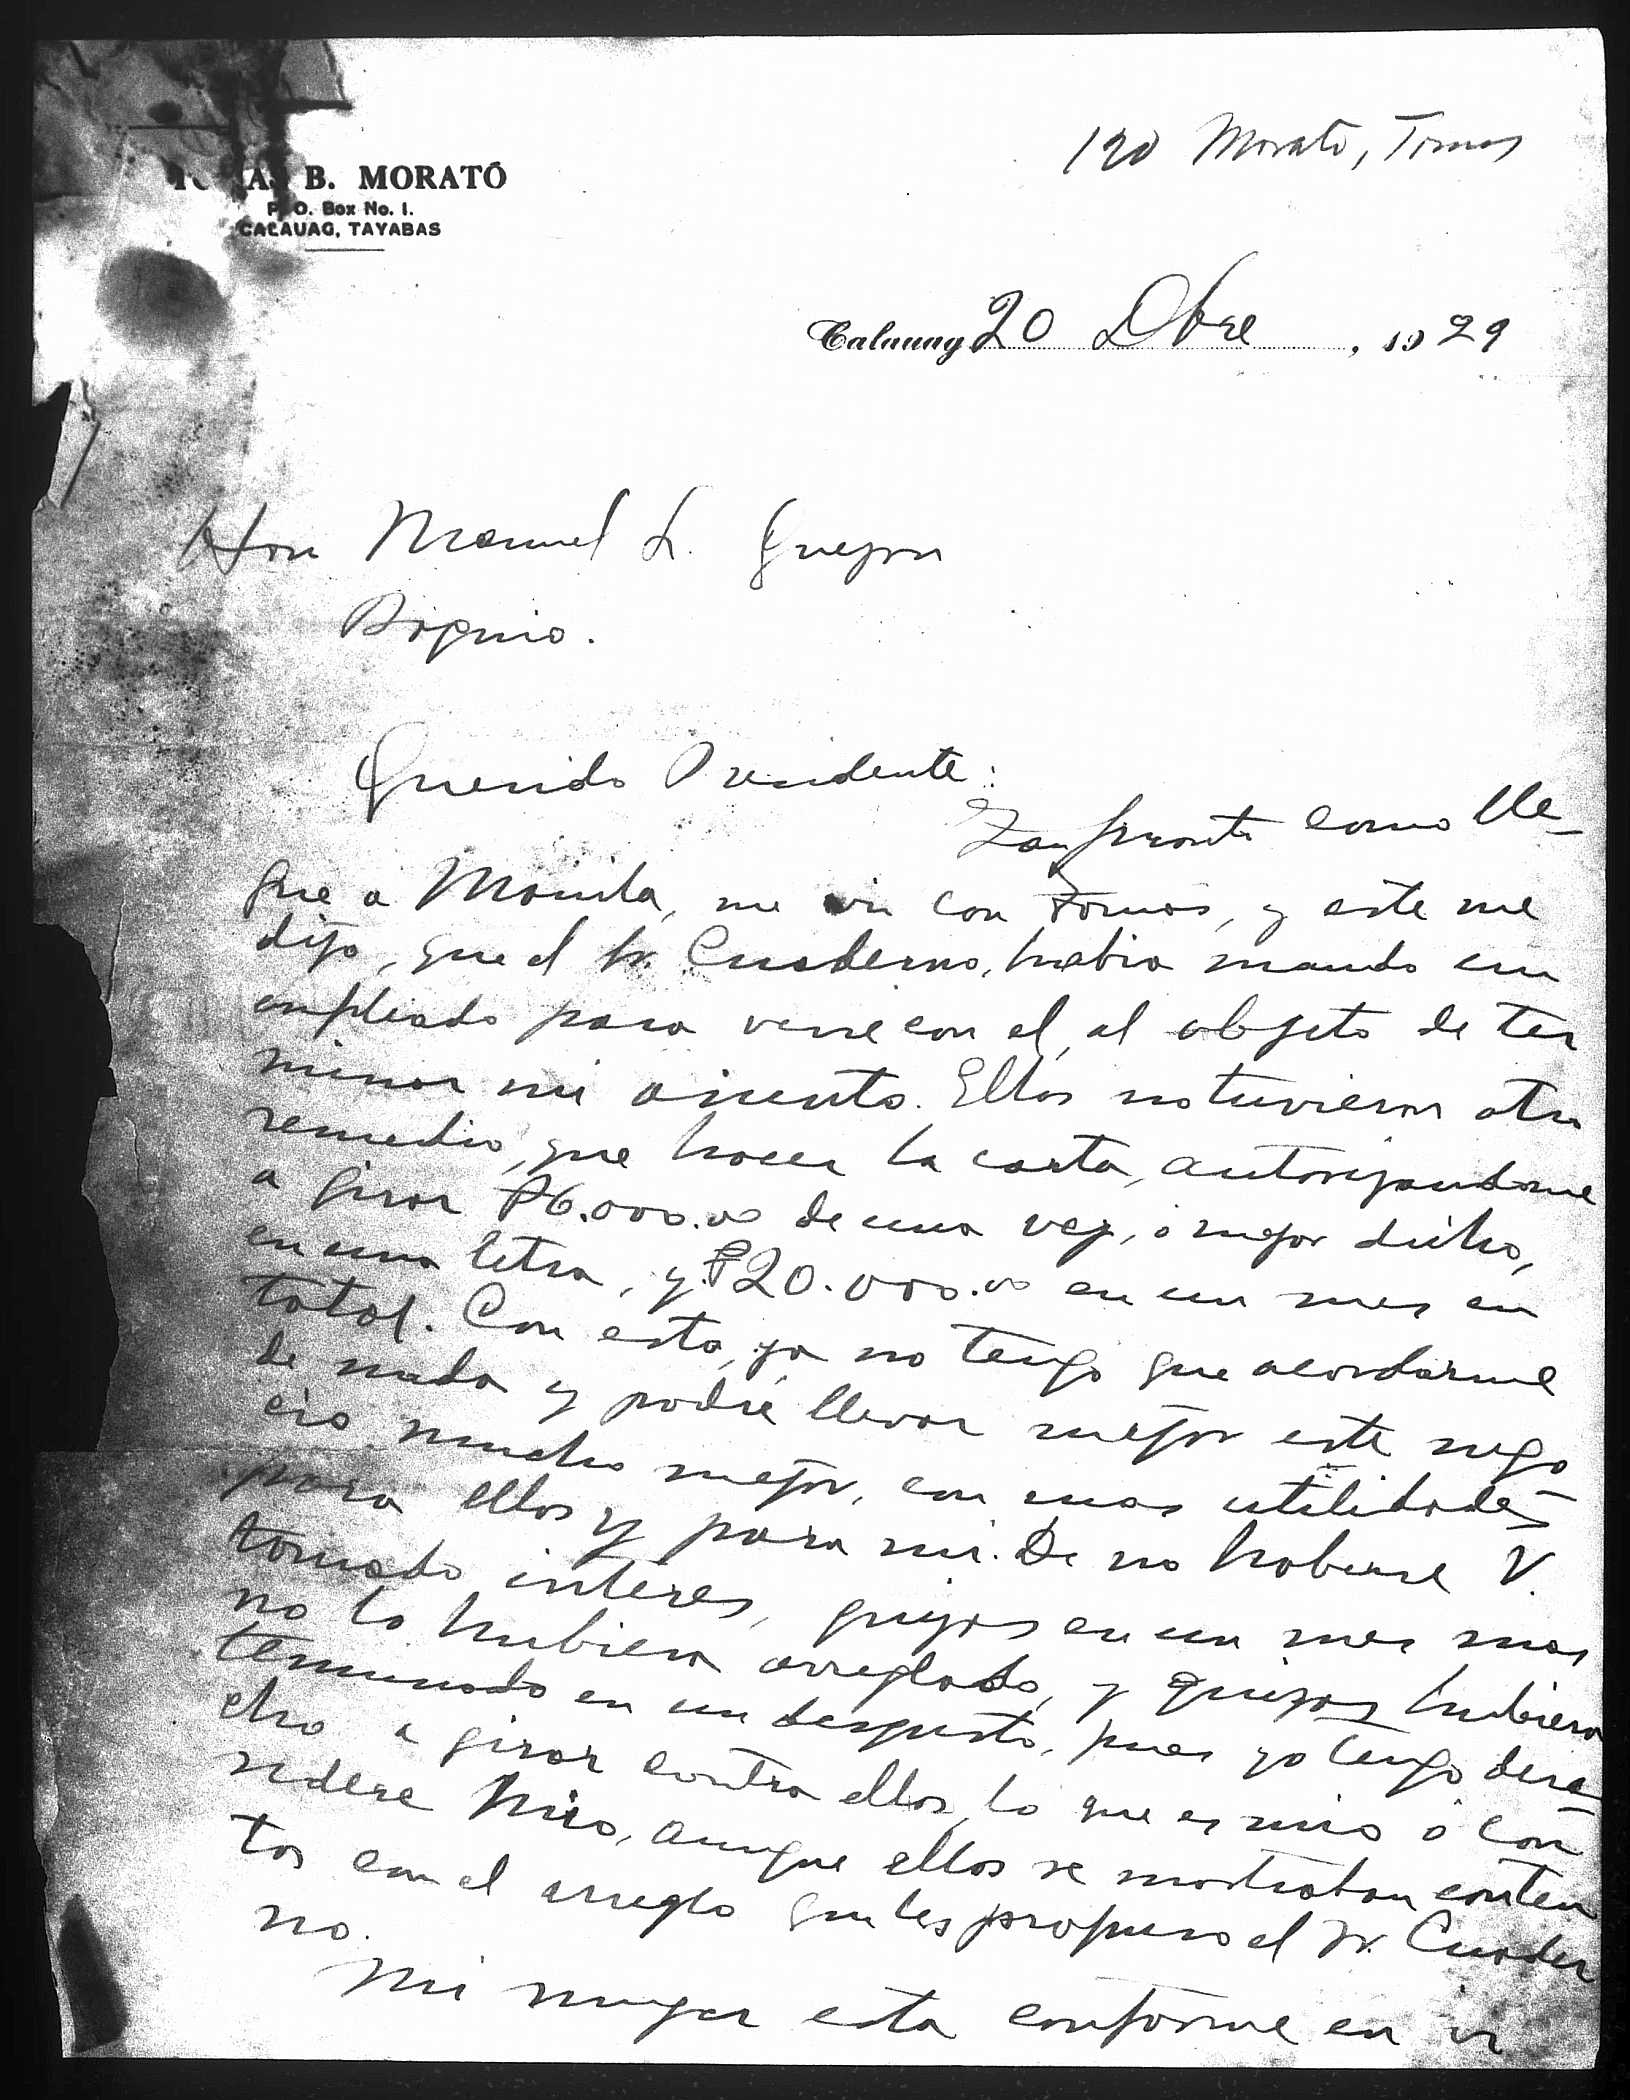 190 Morato, Tomas
TOMAS B. MORATÓ
P. O. Box No. 1.
CALAUAG, TAYABAS
Calauag 20 Dbre, 1929
Hon Manuel L. Quezon
Baguio.
Querido Presidente:
Tan pronto como lle-
gue a Manila, me vi con Tomas, y este me
dijo, que el Sr. Cuaderno, habia mando un
empleado para verse con el, al objeto de ter
minar mi asunto. Ellos no tuvieron otro
remedio, que hacer la carta, autorizandome
a girar ₱6.000.00 de una vez, o mejor dicho,
en una letra, y ₱20.000.00 en un mes en
total. Con esto, ya no tengo que acordarme
de nada y podré llevar mejor este nego
cio mucho mejor, con mas utilidades
para ellos y para mi. De no haberse V.
tomado interes, quizas en un mes mas
no lo hubiera arreglado, y quizas hubiera
terminado en un desgusto, pues yo tengo dere-
cho a girar contra ellos, lo que es mio o con-
sidere mio, aunque ellos se mostraban conten
tos con el arreglo que les propuso el Sr. Cuader
no.
Mi mujer esta conforme en ir